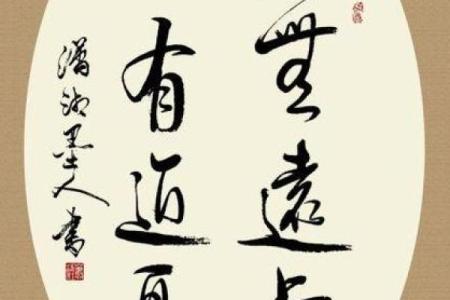 無遠
有近
瀟湘墨人書